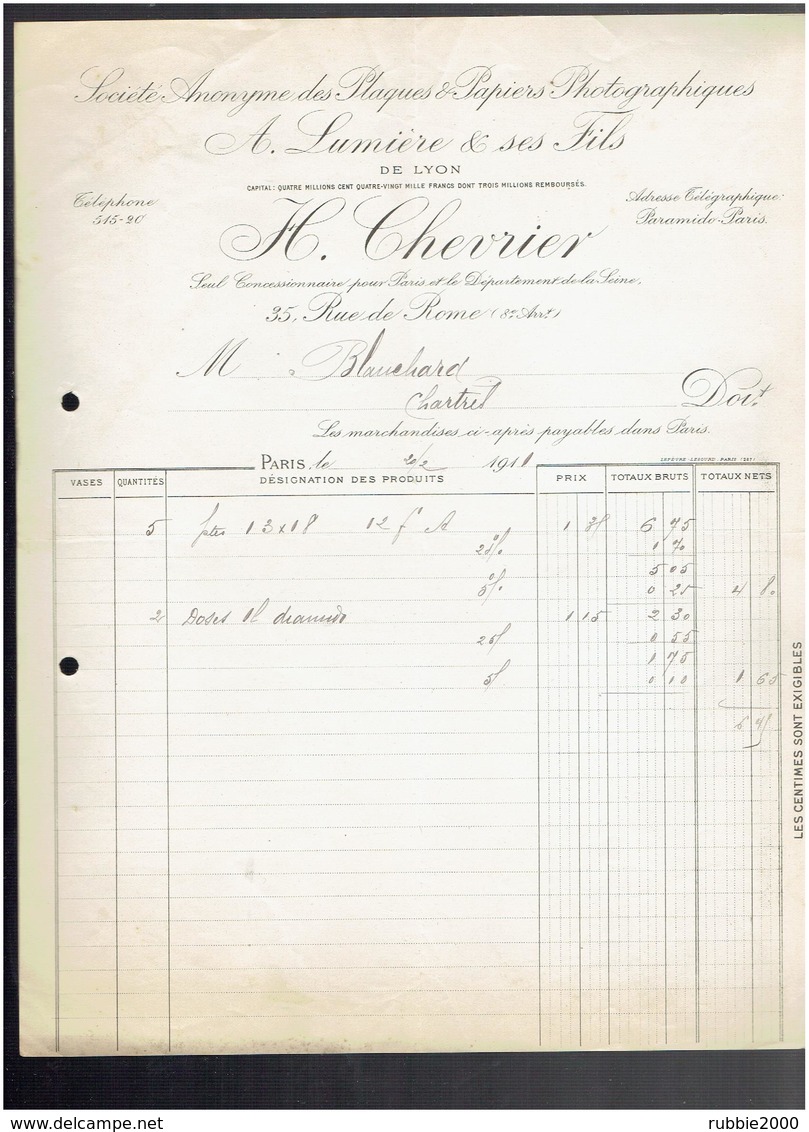 Société Anonyme des Plaques & Papiers Photographiques
A. Lumière & ses Fils
DE LYON
CAPITAL: QUATRE MILLIONS CENT QUATRE-VINGT MILLE FRANCS DONT TROIS MILLIONS REMBOURSÉS.
Téléphone
515-20
Adresse Télégraphique:
Paramido-Paris.
H. Chevrier
Seul Concessionnaire pour Paris et le Département de la Seine,
35, Rue de Rome (8e Arrt)
M Blanchard
Doit
Les marchandises ci-après payables dans Paris.
PARIS, le 20/2 1911
LEFÈVRE-LESOURD. PARIS
VASES QUANTITÉS DÉSIGNATION DES PRODUITS PRIX TOTAUX BRUTS TOTAUX NETS
5 13x18 12 f A 1 35 6 75
25% 1 70
5 05
5% 0 25 4 80
2 Doses 1 15 2 30
25% 0 55
1 75
5% 0 10 1 65
6 45
LES CENTIMES SONT EXIGIBLES
rubbie2000